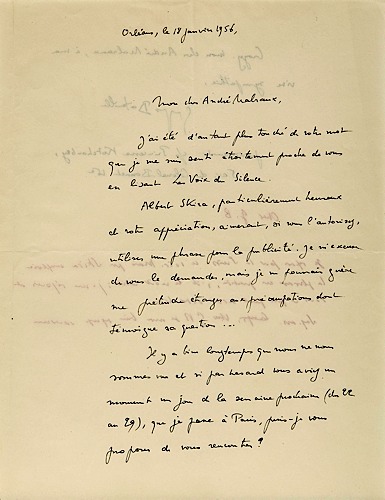 Orléans, le 18 janvier 1956,
Mon cher André Malraux,
J'ai été d'autant plus touché de votre mot
que je me suis senti étroitement proche de vous
en lisant Les Voix du Silence.
Albert Skira, particulièrement heureux
de votre appréciation, aimerait, si vous l'autorisez,
utiliser une phrase pour la publicité. Je m'excuse
de vous le demander, mais je ne pouvais guère
me prétendre étranger aux préoccupations dont
témoigne sa question...
Il y a bien longtemps que nous ne nous
sommes vus et si par hasard vous aviez un
moment un jour de la semaine prochaine (du 22
au 29), que je passe à Paris, puis-je vous
proposer de vous rencontrer ?